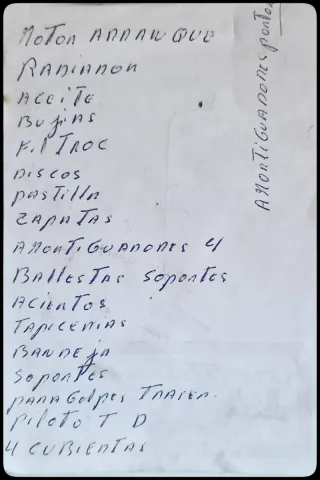 MOTOR ARRANQUE
RADIADOR
ACEITE
BUJIAS
FILTROC
DISCOS
PASTILLA
ZAPATAS
AMORTIGUADORES 4
BALLESTAS SOPORTES
ACIENTOS
TAPICERIAS
BANDEJA
SOPORTES
PARAGOLPES TRASER.
PILOTO T D
4 CUBIERTAS
AMORTIGUADORES PORTON